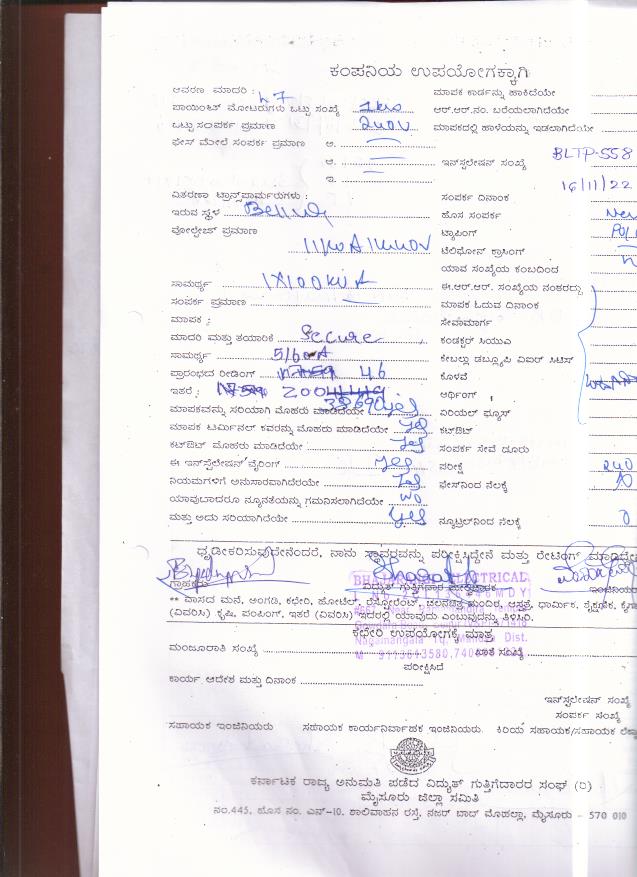 ಕಂಪನಿಯ ಉಪಯೋಗಕ್ಕಾಗಿ
ಆವರಣ ಮಾದರಿ : LT ಮಾಪಕ ಕಾರ್ಡನ್ನು ಹಾಕಿದೆಯೇ
ಪಾಯಿಂಟ್ ಮೋಟರುಗಳು ಒಟ್ಟು ಸಂಖ್ಯೆ 1kw ಆರ್.ಆರ್.ನಂ. ಬರೆಯಲಾಗಿದೆಯೇ
ಒಟ್ಟು ಸಂಪರ್ಕ ಪ್ರಮಾಣ 240V ಮಾಪಕದಲ್ಲಿ ಹಾಳೆಯನ್ನು ಇಡಲಾಗಿದೆಯೇ
ಫೇಸ್ ಮೇಲೆ ಸಂಪರ್ಕ ಪ್ರಮಾಣ ಅ.
ಆ. ಇನ್‌ಸ್ಟಲೇಷನ್ ಸಂಖ್ಯೆ BLTP-558
ಇ. 16/11/22
ವಿತರಣಾ ಟ್ರಾನ್ಸ್‌ಫಾರ್ಮರುಗಳು : ಸಂಪರ್ಕ ದಿನಾಂಕ
ಇರುವ ಸ್ಥಳ ಹೊಸ ಸಂಪರ್ಕ
ವೋಲ್ಟೇಜ್ ಪ್ರಮಾಣ ಟ್ಯಾಪಿಂಗ್
ಟೆಲಿಫೋನ್ ಕ್ರಾಸಿಂಗ್
ಯಾವ ಸಂಖ್ಯೆಯ ಕಂಬದಿಂದ
ಸಾಮರ್ಥ್ಯ 1X100KVA ಈ.ಆರ್.ಆರ್. ಸಂಖ್ಯೆಯ ನಂತರದ್ದು
ಸಂಪರ್ಕ ಪ್ರಮಾಣ ಮಾಪಕ ಓದುವ ದಿನಾಂಕ
ಮಾಪಕ : ಸೇವಾಮಾರ್ಗ
ಮಾದರಿ ಮತ್ತು ತಯಾರಿಕೆ Secure ಕಂಡಕ್ಟರ್ ಸಿಯುಎ
ಸಾಮರ್ಥ್ಯ 5/60A ಕೇಬಲ್ಲು ಡಬ್ಲ್ಯೂಪಿ ಏಐರ್ ಸಿಟಿಸ್
ಪ್ರಾರಂಭದ ರೀಡಿಂಗ್ 46 ಕೊಳವೆ
ಇತರೆ : ಆರ್ಥಿಂಗ್
ಮಾಪಕವನ್ನು ಸರಿಯಾಗಿ ಮೊಹರು ಮಾಡಿದೆಯೇ yes ಏರಿಯಲ್ ಫ್ಯೂಸ್
ಮಾಪಕ ಟರ್ಮಿನಲ್ ಕವರನ್ನು ಮೊಹರು ಮಾಡಿದೆಯೇ yes ಕಟ್‌ಔಟ್
ಕಟ್‌ಔಟ್ ಮೊಹರು ಮಾಡಿದೆಯೇ yes ಸಂಪರ್ಕ ಸೇವೆ ದೂರು
ಈ ಇನ್‌ಸ್ಟಲೇಷನ್ ವೈರಿಂಗ್ yes ಪರೀಕ್ಷೆ 240
ನಿಯಮಗಳಿಗೆ ಅನುಸಾರವಾಗಿದೆಯೇ yes ಫೇಸ್‌ನಿಂದ ನೆಲಕ್ಕೆ
ಯಾವುದಾದರೂ ನ್ಯೂನತೆಯನ್ನು ಗಮನಿಸಲಾಗಿದೆಯೇ No
ಮತ್ತು ಅದು ಸರಿಯಾಗಿದೆಯೇ yes ನ್ಯೂಟ್ರಲ್‌ನಿಂದ ನೆಲಕ್ಕೆ 0
ಧೃಡೀಕರಿಸುವುದೇನೆಂದರೆ, ನಾನು ಸ್ಥಾವರವನ್ನು ಪರೀಕ್ಷಿಸಿದ್ದೇನೆ ಮತ್ತು ರೇಟಿಂಗ್ ಮಾಡಿದ್ದೇ
ಗ್ರಾಹಕರು ವಿದ್ಯುತ್ ಗುತ್ತಿಗೆದಾರ ಇಂಜಿನಿಯ
** ವಾಸದ ಮನೆ, ಅಂಗಡಿ, ಕಛೇರಿ, ಹೋಟೆಲ್, ರೆಸ್ಟೋರೆಂಟ್, ಚಲನಚಿತ್ರ ಮಂದಿರ, ಆಸ್ಪತ್ರೆ, ಧಾರ್ಮಿಕ, ಶೈಕ್ಷಣಿಕ, ಕೈಗಾ
(ವಿವರಿಸಿ) ಕೃಷಿ, ಪಂಪಿಂಗ್, ಇತರೆ (ವಿವರಿಸಿ) ಇದರಲ್ಲಿ ಯಾವುದು ಎಂಬುವುದನ್ನು ತಿಳಿಸಿರಿ.
ELECTRICAL
Nagamangala Tq, Mandya Dist.
ಕಛೇರಿ ಉಪಯೋಗಕ್ಕೆ ಮಾತ್ರ
ಮಂಜೂರಾತಿ ಸಂಖ್ಯೆ ಖಾತೆ ಸಂಖ್ಯೆ
ಪರೀಕ್ಷಿಸಿದೆ
ಕಾರ್ಯ ಆದೇಶ ಮತ್ತು ದಿನಾಂಕ
ಇನ್‌ಸ್ಟಲೇಷನ್ ಸಂಖ್ಯೆ
ಸಂಪರ್ಕ ಸಂಖ್ಯೆ
ಸಹಾಯಕ ಇಂಜಿನಿಯರು ಸಹಾಯಕ ಕಾರ್ಯನಿರ್ವಾಹಕ ಇಂಜಿನಿಯರು. ಕಿರಿಯ ಸಹಾಯಕ/ಸಹಾಯಕ ಲೆಕ್ಕಾ
ಕರ್ನಾಟಕ ರಾಜ್ಯ ಅನುಮತಿ ಪಡೆದ ವಿದ್ಯುತ್ ಗುತ್ತಿಗೆದಾರರ ಸಂಘ (ರಿ)
ಮೈಸೂರು ಜಿಲ್ಲಾ ಸಮಿತಿ
ನಂ.445, ಹೊಸ ನಂ. ಎನ್-10, ಶಾಲಿವಾಹನ ರಸ್ತೆ, ನಜರ್ ಬಾದ್ ಮೊಹಲ್ಲಾ, ಮೈಸೂರು - 570 010